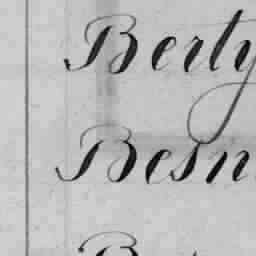 Berty
Besn